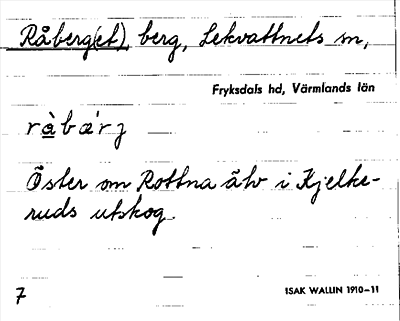 Råberg(et), berg, Lekvattnets sn,
Fryksdals hd, Värmlands län
rå̀bær̀j
Öster om Rottna älv i Kjelke-
ruds utskog.
7
ISAK WALLIN 1910-11